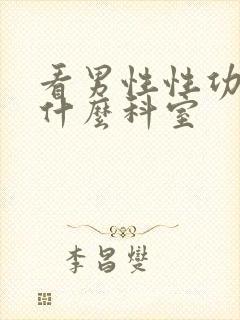 看男性性功
什麼科室
李昌燮